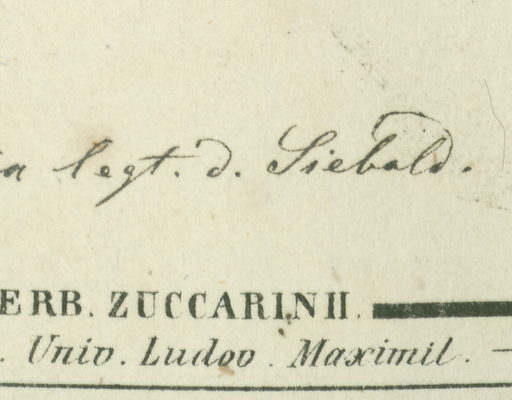 a legt. d. Siebold.
ERB. ZUCCARINII.
. Univ. Ludov. Maximil. —